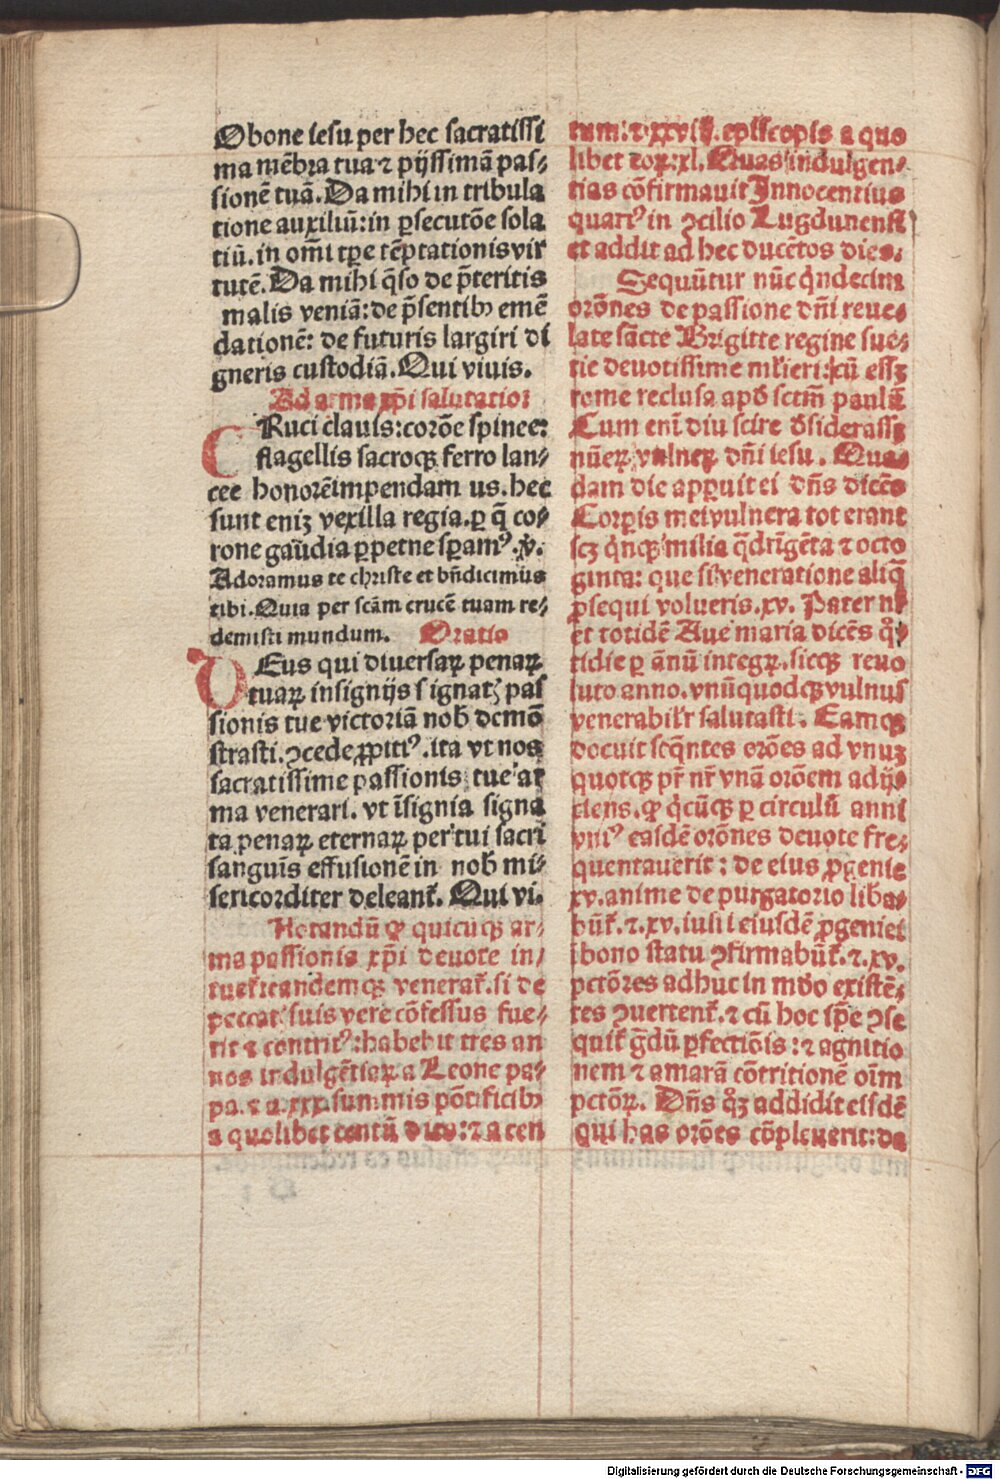 O bone iesu per hec sacratissi
ma mēbra tua ⁊ pijssimā pas⸗
sionē tuā. Da mihi in tribula
tione auxiliū: in ꝑsecutōe sola
tiū. in om̄i tꝑe tēptationis vir
tutē. Da mihi q̄so de p̄teritis
malis veniā: de p̄sentibꝰ emē
dationē: de futuris largiri di
gneris custodiā. Qui viuis.
Ad arma xp̄i salutatio:
CRuci clauis: corōe spinee:
flagellis sacroqꝫ ferro lan⸗
cee honorē impendam us. hec
sunt eniꝫ vexilla regia. ꝑ q̄ co⸗
rone gaūdia ꝑpetne sꝑamꝰ. ℣.
Adoramus te christe et bn̄dicimus
tibi. Quia per scām crucē tuam re⸗
demisti mundum. Oratio
DEus qui diuersaꝝ penaꝝ
tuaꝝ insignijs signatꝫ pas
sionis tue victoriā nob̄ demō
strasti. ꝯcede ꝓpitiꝰ. ita vt nos
sacratissime passionis tue ar
ma venerari. vt īsignia signa
ta penaꝝ eternaꝝ per tui sacri
sanguīs effusionē in nob̄ mi⸗
sericorditer deleant̄. Qui vi.
Notandū ꝙ quicūqꝫ ar⸗
ma passionis xp̄i deuote in⸗
tuet̄ eandemqꝫ venerat̄. si de
peccat suis vere cōfessus fue⸗
rit ⁊ contritꝰ: habebit tres an
nos indulgētiaꝝ a Leone pa⸗
pa. ⁊ a .xxx. summis pōtificibꝰ
a quolibet centū dies: ⁊ a cen
tum: ⁊ xxviij. episcopis a quo
libet toꝑ: xl. Quas indulgen⸗
tias cōfirmauit Innocentius
quartꝰ in ꝯcilio Lugdunensi
et addit ad hec ducētos dies.
Sequūtur nūc q̇ndecim
orōnes de passione dn̄i reue⸗
late sācte Brigitte regine sue⸗
tie deuotissime ml̄ieri: cū essꝫ
rome reclusa apd̄ sctm̄ paulū
Cum eni diu scire d̄siderassꝫ
nūeꝝ vulneꝝ dn̄i iesu. Qua⸗
dam die apꝑuit ei dn̄s dicēs
Corꝑis mei vulnera tot erant
scꝫ q̇nqꝫ milia q̄drīgēta ⁊ octo
ginta: que si veneratione aliq̄
ꝓsequi volueris. xv. Pater nr̄
et totidē Aue maria dicēs q̊
tidie ꝑ ānū integꝝ. sicqꝫ reuo
luto anno. vnūquodqꝫ vulnus
venerabilr̄ salutasti. Eamqꝫ
docuit seq̄ntes orōes ad vnuꝫ
quotqꝫ pr̄ nr̄ vnā orōem adij⸗
ciens. ꝙ q̇cūqꝫ ꝑ circulū anni
vniꝰ easdē orōnes deuote fre⸗
quentauerit: de eius ꝓgenie
xv. anime de purgatorio liba⸗
būt̄. ⁊. xv. iusti eiusdē ꝓgeniei
ī bono statu ꝯfirmabūt̄. ⁊. xv.
pctōres adhuc in mūdo existē⸗
tes ꝯuertent̄. ⁊ cū hoc ip̄e ꝯse
quit̄ gͣdū ꝑfectiōis: ⁊ agnitio
nem ⁊ amarā cōtritionē oīm
pctōꝝ. Dn̄s q̊ꝫ addidit eisdē
qui has orōes cōpleuerit: da
Digitalisierung gefördert durch die Deutsche Forschungsgemeinschaft - DFG